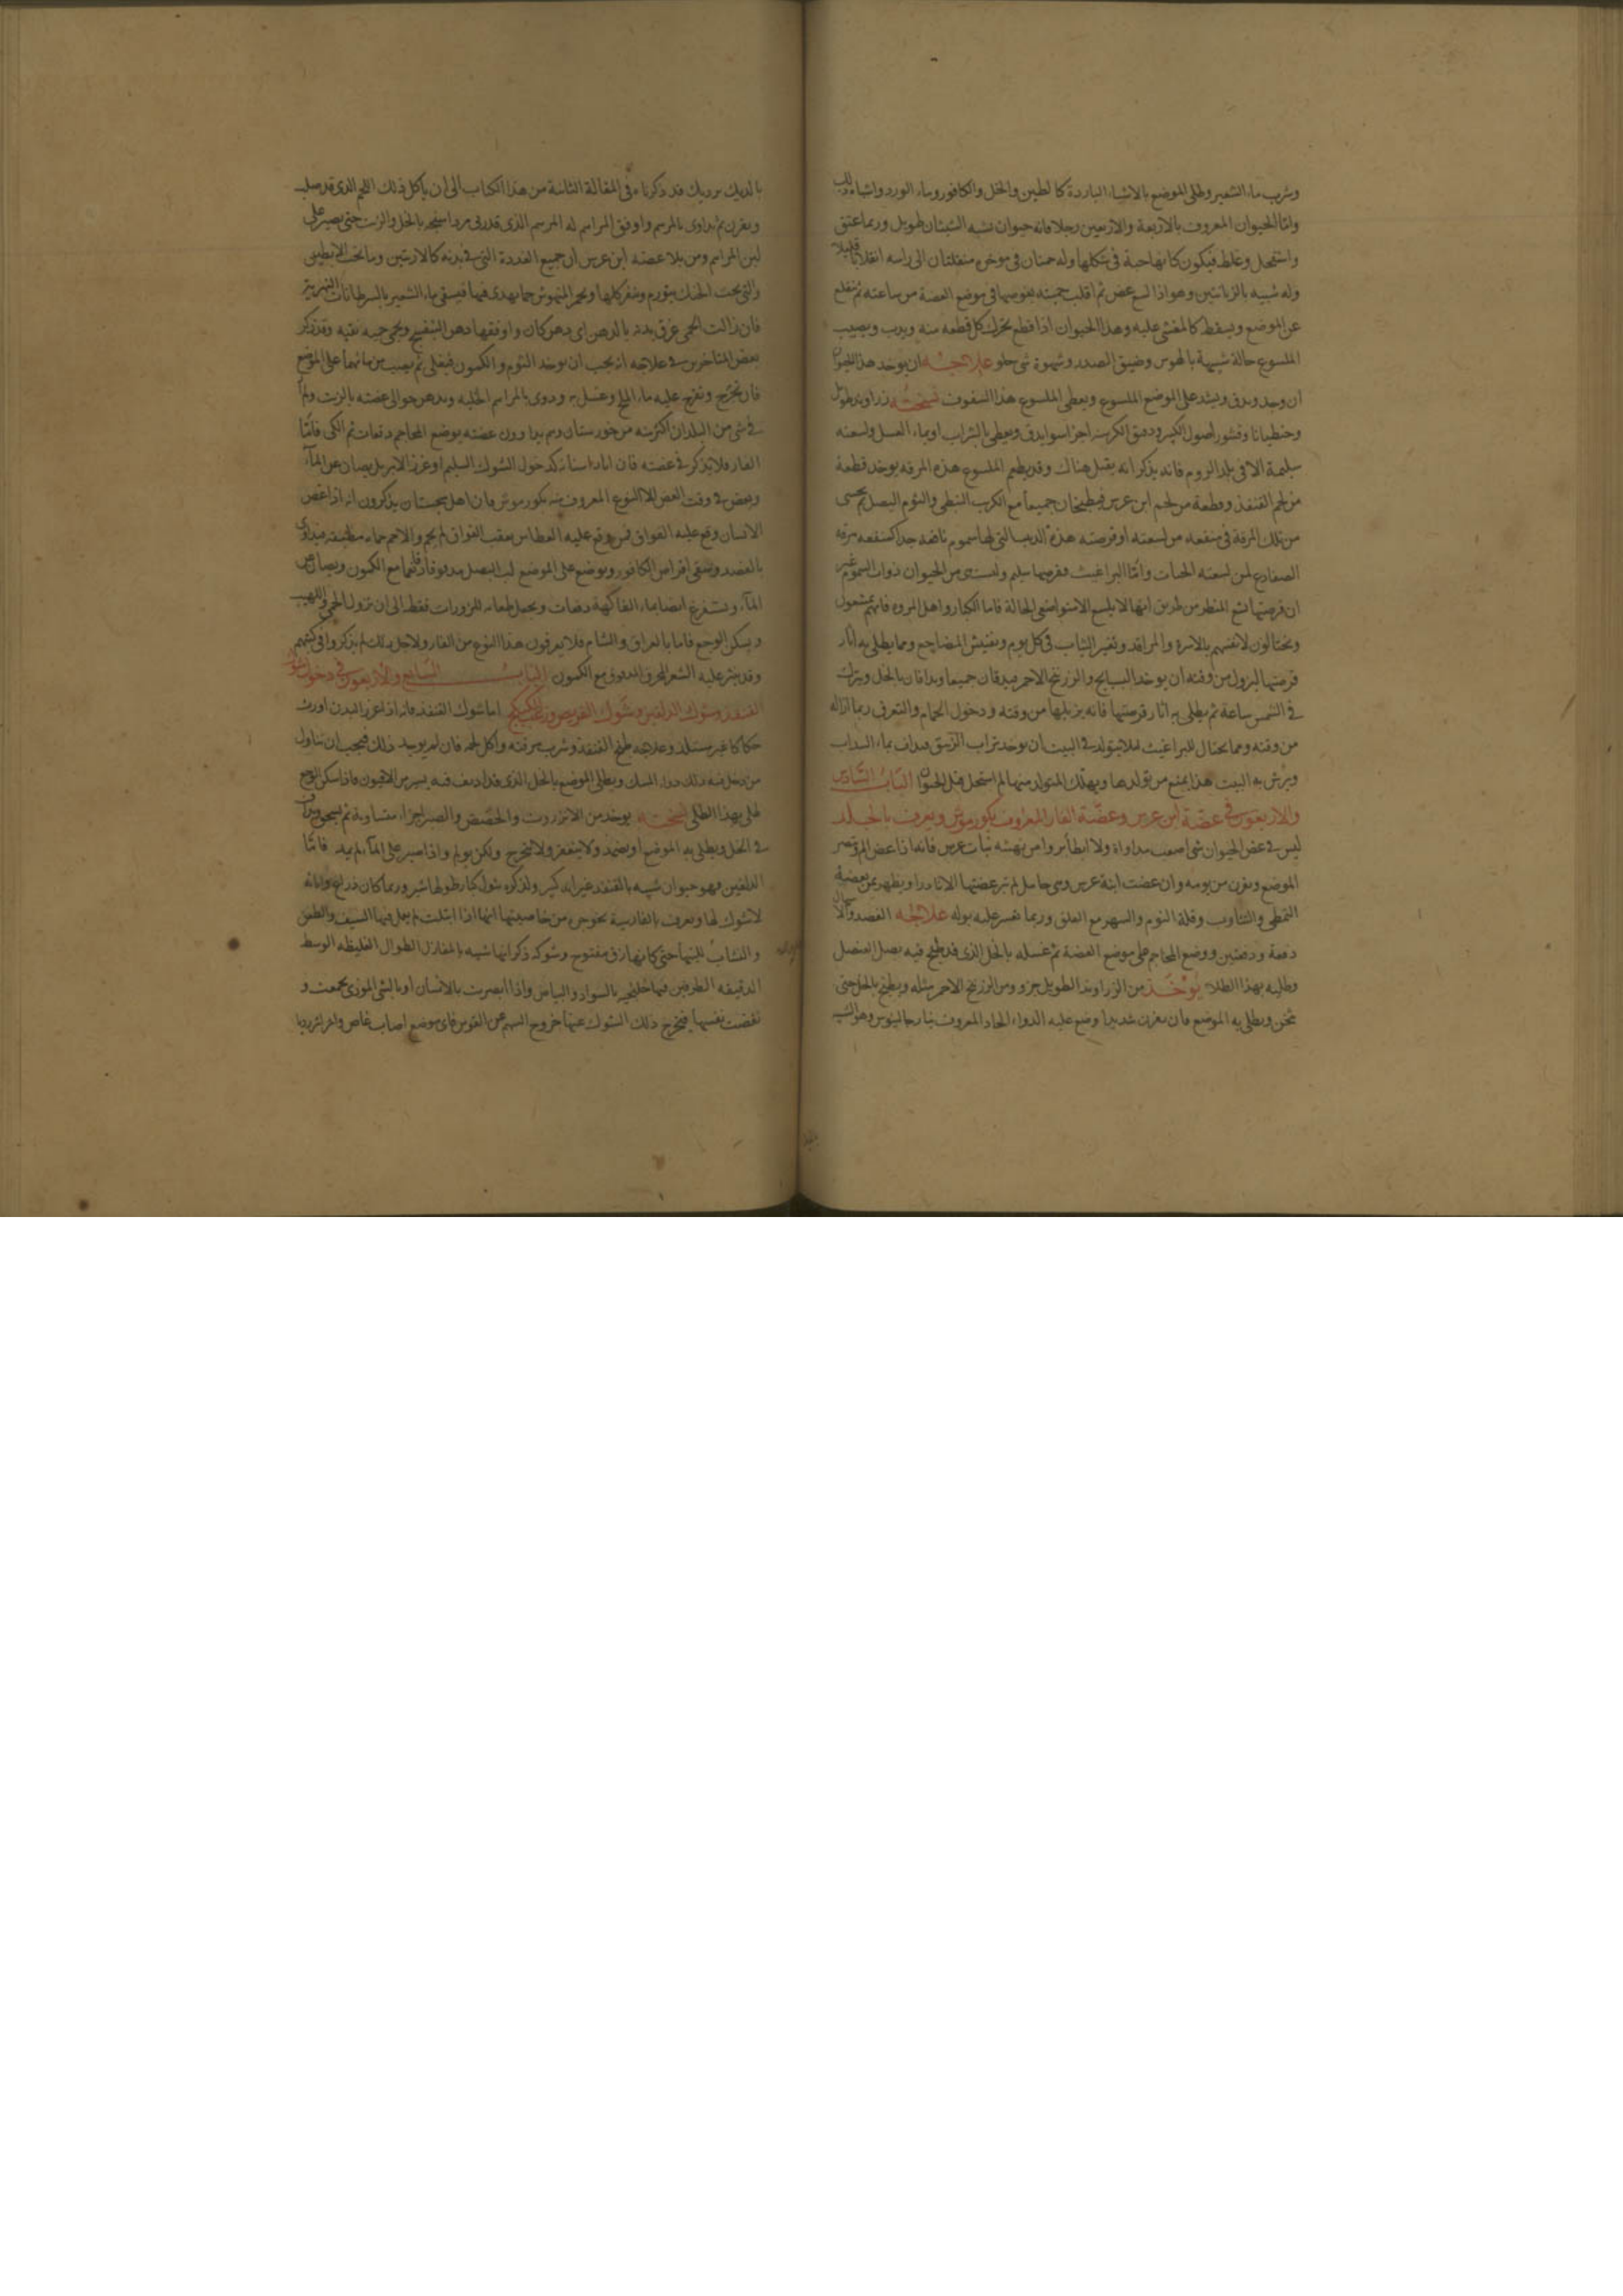 وشرب ماء الشعير وطلى الموضع بالاشياء الباردة كالطين والخل والكافور وماء الورد واشباه ذلك
وامّا الحيوان المعروف بالاربعة والاربعين رجلا فانه حيوان يشبه الشبثان طويل وربما عتق
واستفحل وغلظ فيكون كانها حية في شكلها وله حمتان في موخره منقلبتان الى راسه انقلابا قليلا
وله شبيه بالزبانتين وهو اذا لسع عض ثم اقلب حمتيه يغوصهما في موضع العضة من ساعته ثم ينقلع
عن الموضع ويسقط كالمغشي عليه وهذا الحيوان اذا قطع تحرك كل قطعة منه ويدب ويصيب
الملسوع حالة شبيهة بالهوس وضيق الصدر وشهوة شي حلو علاجه ان يوخذ هذا الحيوان
ان وجد ويدق ويشد على الموضع الملسوع ويعطى الملسوع هذا السفوف نسخته زراوند طويل
وجنطيانا وقشور اصول الكبر ودقيق الكرسنه اجزا سوا يدق ويعطى بالشراب او بماء العسل ولسعته
سليمة الا في بلد الروم فانه يذكر انه يقتل هناك وقد يطعم الملسوع هذه المرقه يوخذ قطعة
من لحم القنفذ وقطعة من لحم ابن عرس فيطبخان جميعا مع الكرنب النبطي والثوم البصل ثم يحسى
من تلك المرقة في منفعه من لسعته او قرصته هذه الدبيبا التي لها سموم نافضه جدا كمنفعه مرقه
الضفادع لمن لسعته الحيات وامّا البراغيث فقرصها سليم وليست من الحيوان ذوات السموم غير
ان قرصتها تشع المنظر من طريق انها لا يلسع الا متواضعي الحالة فاما الكبار واهل المروه فانهم يشتغلون
ويحتالون لانفسهم بالاسرة والمراقد وتغيير الثياب في كل يوم وتفتيش المضاجع ومما يطلى به اثار
قرصتها لتزول من وقته ان يوخذ السبابج والزرنيخ الاحمر فيدقان جميعا ويدافان بالخل ويترك
في الشمس ساعة ثم يطلى به اثار قرصتها فانه يزيلها من وقته ودخول الحمام والتعرق ربما ازاله
من وقته ومما يحتال للبراغيث لئلا يتولد في البيت ان يوخذ تراب الزيبق فيداف بماء السداب
ويرش به البيت هذا يمنع من تولدها ويهلك المتولد منها ما لم استحل قبل الحيوان الباب السادس
والاربعون في عضة ابن عرس وعضّة الفار المعروف بكور موش ويعرف بالخلد
ليس في عض الحيوان شي اصعب مداواة ولا ابطأ بروا من نهشه نبات عرس فانه اذا عض المرو تضر
الموضع وعفن من يومه وان عضت ابنة عرس وهي حامل لم تبر عضتها الا نادرا ويظهر بمن تعضه
التمطي والتثاوب وقلة النوم والسهر مع القلق وربما تعسر عليه بوله علاجه الفصد
دفعة ودفعتين ووضع المحاجم على موضع العضة ثم غسله بالخل الذي قد طبخ فيه بصل العنصل
وطليه بهذا الطلا يوخذ من الزراوند الطويل جزو ومن الزرنيخ الاحمر مثله ويطبخ بالخل حتى
يثخن ويطلى به الموضع فان عفن شديدا وضع عليه الدواء الحاد المعروف بنار جالينوس وهو الشبيه
بالديك برديك قد ذكرناه في المقالة الثامنة من هذا الكتاب الى ان ياكل ذلك اللحم الذي قد صلب
وعفن ثم يداوى بالمرهم واوفق المراهم له المرهم الذي قد ربي مرداسنجه بالخل والزيت حتى يصير على
لين المراهم ومن بلا عضته ابن عرس ان جميع الغددة التي في بدنه كالاربتين وما تحت الابطين
والتي تحت الحنك يتورم وينفر كلها ويحم المنهوش حما يهدى فيها فيسقى ماء الشعير بالسرطانات النهرية
فان زالت الحمى عرق بدنه بالدهن اي دهن كان واوفقها دهن البنفسج ونحى جميع تعبه وقد ذكر
بعض المتاخرين في علاجه انه يجب ان يوخذ الثوم والكمون فيغلى ثم يصب من مائهما على الموضع
فان تخرج وتقرح عليه ماء الملح وغسل به ودوى بالمراهم الحليه ودهن حوالى عضته بالزيت ولما
في شي من البلدان اكثر منه من خورستان وهم يداوون عضته بوضع المحاجم دفعات ثم الكي فامّا
الفار فلا يذكر في عضته فان اثاره اسنانه كدخول الشوك السليم او غرز الابر بل يصان عن المآء
وبعض في وقت العض الا النوع المعروف منه بكور موش فان اهل سجستان يذكرون انه اذا عض
الانسان وقع عليه الفواق فمن وقع عليه العطاس بعقب الفواق لم يحم والا حم حماء مطبقه فيداوى
بالفصد ويسقى اقراص الكافور ويوضع على الموضع لب البصل مدقوقا مع الكمون ويصان عن
المآء ويستفرغ ايضا بماء الفاكهة دفعات ويجعل طعامه المزورات فقط الى ان تزول الحمى واللهيب
ويسكن الوجع فاما بالعراق والشام فلا يعرفون هذا النوع من الفار ولاجل ذلك لم يذكروا في كتبهم
وقد ينثر عليه الشعر المحرق المدقوق مع الكمون الباب السابع والاربعون في دخول شوك
القنفذ وشوك الدلفين وشوك القريص اما شوك القنفذ فانه اذا غرز البدن اورث
حكاكا غير مستلذ وعلاجه طبخ القنفذ وشرب مرقته واكل لحمه فان لم يوجد ذلك فيجب ان يتناول
من دخل فيه ذلك دواء المسك ويطلى الموضع بالخل الذي قد اديف فيه يسير من الافيون فاذا سكن الوجع
طلى بهذا الطلى نسخته يوخذ من الانزروت والحضض والصبر اجزاء متساوية ثم يسحق ويداف
في الخل ويطلى به الموضع او يضمد ولا ينفض ولا يتخرج ولكن يولم واذا صبر على المآء لم يبد فامّا
الدلفين فهو حيوان شبيه بالقنفذ غير انه كبير ولذكوره شوك كبار طولها شبر وربما كان ذراع واناثه
لا شوك لها ويعرف بالفارسية نحوجن من خاصيتها انها اذا ابتلت لم يعمل فيها السيف والطعن
والنشاب للينها حتى كانها زق مفتوح وشوكه ذكرانها شبيه بالمغازل الطوال الغليظه الوسط
الدقيقه الطرفين فيها خليجيه بالسواد والبياض واذا ابصرت بالانسان او بالشي الموذي تجمعت و
نفضت نفسها فيخرج ذلك الشوك عنها خروج السهم عن القوس فاى موضع اصاب غاص والم الم رديا